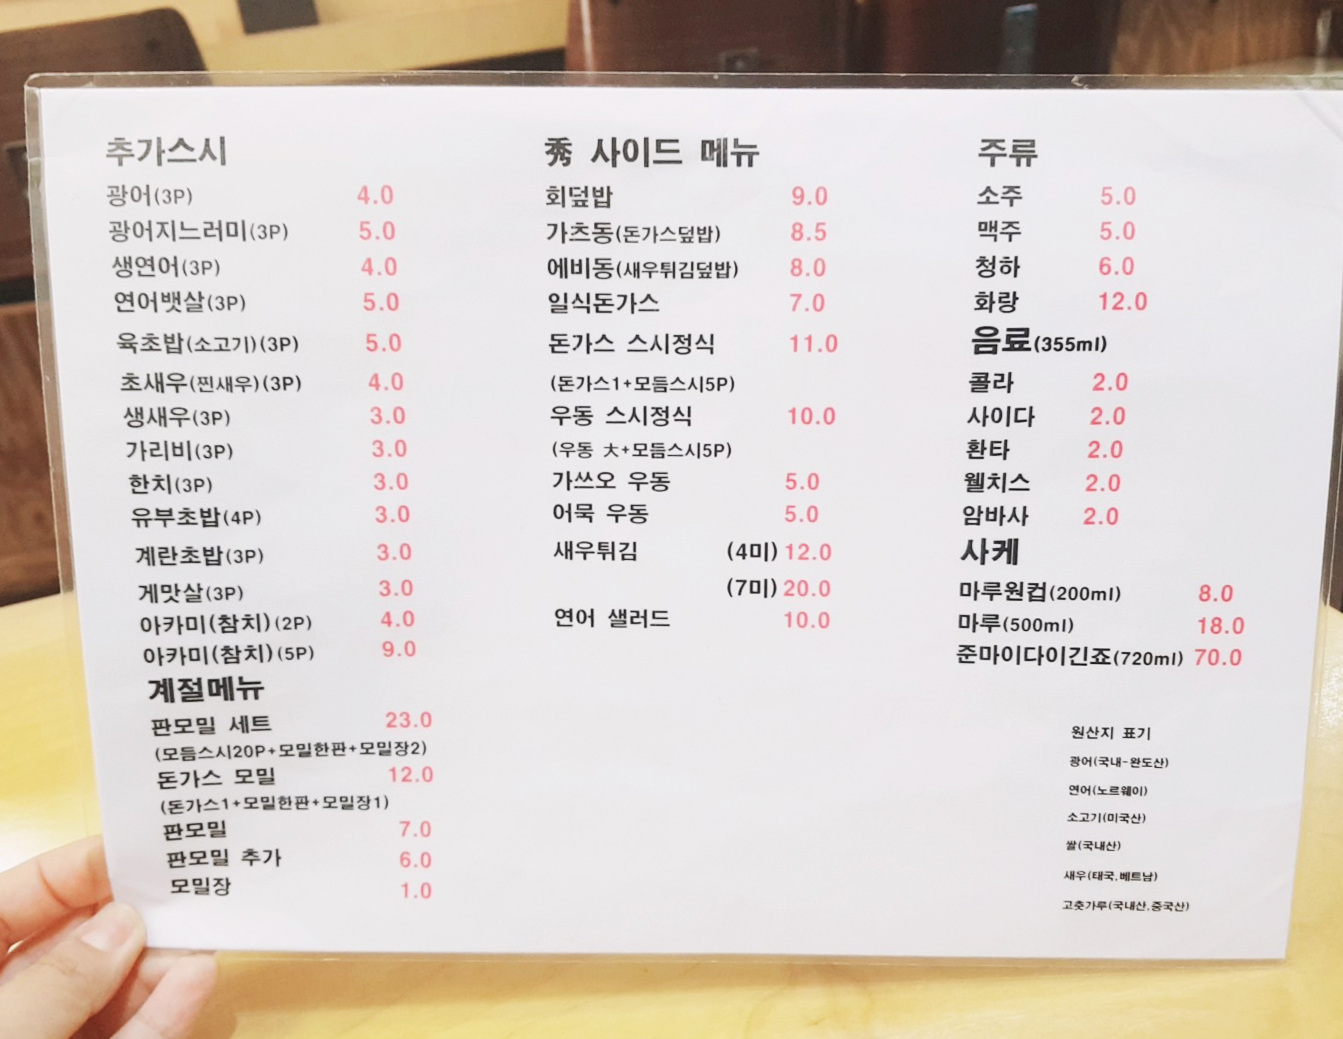 추가스시
광어(3P) 4.0
광어지느러미(3P) 5.0
생연어(3P) 4.0
연어뱃살(3P) 5.0
육초밥(소고기)(3P) 5.0
초새우(찐새우)(3P) 4.0
생새우(3P) 3.0
가리비(3P) 3.0
한치(3P) 3.0
유부초밥(4P) 3.0
계란초밥(3P) 3.0
게맛살(3P) 3.0
아카미(참치)(2P) 4.0
아카미(참치)(5P) 9.0
계절메뉴
판모밀 세트 23.0
(모듬스시20P+모밀한판+모밀장2)
돈가스 모밀 12.0
(돈가스1+모밀한판+모밀장1)
판모밀 7.0
판모밀 추가 6.0
모밀장 1.0
秀 사이드 메뉴
회덮밥 9.0
가츠동(돈가스덮밥) 8.5
에비동(새우튀김덮밥) 8.0
일식돈가스 7.0
돈가스 스시정식 11.0
(돈가스1+모듬스시5P)
우동 스시정식 10.0
(우동 大+모듬스시5P)
가쓰오 우동 5.0
어묵 우동 5.0
새우튀김 (4미) 12.0
(7미) 20.0
연어 샐러드 10.0
주류
소주 5.0
맥주 5.0
청하 6.0
화랑 12.0
음료(355ml)
콜라 2.0
사이다 2.0
환타 2.0
웰치스 2.0
암바사 2.0
사케
마루원컵(200ml) 8.0
마루(500ml) 18.0
준마이다이긴죠(720ml) 70.0
원산지 표기
광어(국내-완도산)
연어(노르웨이)
소고기(미국산)
쌀(국내산)
새우(태국,베트남)
고춧가루(국내산,중국산)